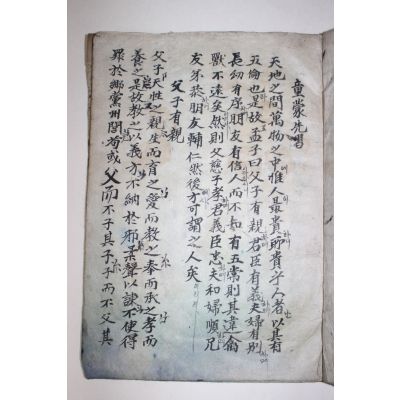 童蒙先習
天地之間萬物之中惟人最貴所貴乎人者以其有
五倫也是故孟子曰父子有親君臣有義夫婦有別
長幼有序朋友有信人而不知有五常則其違禽
獸不遠矣然則父慈子孝君義臣忠夫和婦順兄
友弟恭朋友輔仁然後方可謂之人矣
父子有親
父子天性之親生而育之愛而教之奉而承之孝而
養之是故教之以義方不納於邪柔聲以諫不使得
罪於鄕黨州閭苟或父而不子其子子而不父其